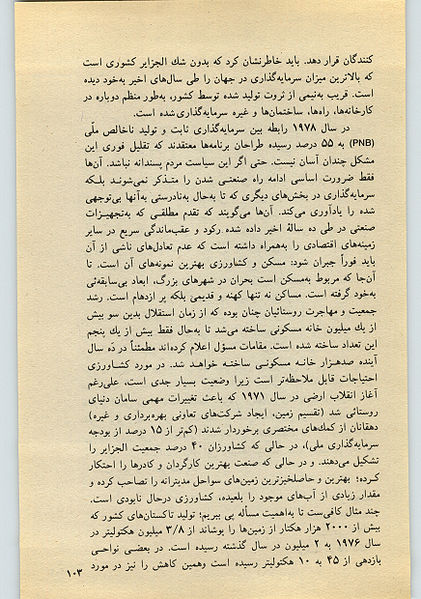 کنندگان قرار دهد. باید خاطرنشان کرد که بدون شك الجزایر کشوری است
که بالاترین میزان سرمایه‌گذاری در جهان را طی سال‌های اخیر به‌خود دیده
است. قریب به‌نیمی از ثروت تولید شده توسط کشور، به‌طور منظم دوباره در
کارخانه‌ها، راه‌ها، ساختمان‌ها و غیره سرمایه‌گذاری‌شده است.
در سال ۱۹۷۸ رابطه بین سرمایه‌گذاری ثابت و تولید ناخالص ملّی
(PNB) به ۵۵ درصد رسیده طراحان برنامه‌ها معتقدند که تقلیل فوری این
مشکل چندان آسان نیست. حتی اگر این سیاست مردم پسندانه نباشد. آن‌ها
فقط ضرورت اساسی ادامه راه صنعتی شدن را متذکر نمی‌شوند بلکه
سرمایه‌گذاری در بخش‌های دیگری که تا به‌حال به‌نادرستی به‌آنها بی‌توجهی
شده را یادآوری می‌کند. آن‌ها می‌گویند که تقدم مطلقی که به‌تجهیزات
صنعتی در طی ده سالهٔ اخیر داده شده رکود و عقب‌ماندگی سریع در سایر
زمینه‌های اقتصادی را به‌همراه داشته است که عدم تعادل‌های ناشی از آن
باید فوراً جبران شود: مسکن و کشاورزی بهترین نمونه‌های آن است. تا
آن‌جا که مربوط به‌مسکن است بحران در شهرهای بزرگ، ابعاد بی‌سابقه‌ئی
به‌خود گرفته است. مساکن نه تنها کهنه و قدیمی بلکه پر ازدهام است. رشد
جمعیت و مهاجرت روستائیان چنان بوده که از زمان استقلال بدین سو بیش
از یك میلیون خانه مسکونی ساخته می‌شد تا به‌حال فقط بیش از یك پنجم
این تعداد ساخته شده است. مقامات مسؤل اعلام کرده‌اند مطمئناً در دَه سال
آینده صدهزار خانه مسکونی ساخته خواهد شد. در مورد کشاورزی
احتیاجات قابل ملاحظه‌تر است زیرا وضعیت بسیار جدی است. علی‌رغم
آغاز انقلاب ارضی در سال ۱۹۷۱ که باعث تغییرات مهمی سامان دنیای
روستائی شد (تقسیم زمین، ایجاد شرکت‌های تعاونی بهره‌برداری و غیره)
دهقانان از کمك‌های مختصری برخوردار شدند (کم‌تر از ۱۵ درصد از بودجه
سرمایه‌گذاری ملی)، در حالی که کشاورزان ۴۰ درصد جمعیت الجزایر را
تشکیل می‌دهند. و در حالی که صنعت بهترین کارگردان و کادرها را احتکار
کرده؛ بهترین و حاصلخیزترین زمین‌های سواحل مدیترانه را تصاحب کرده و
مقدار زیادی از آب‌های موجود را بلعیده، کشاورزی درحال نابودی است.
چند مثال کافی‌ست تا به‌اهمیت مسأله پی ببریم؛ تولید تاکستان‌های کشور که
بیش از ۲۰۰۰ هزار هکتار از زمین‌ها را پوشاند از ۳/۸ میلیون هکتولیتر در
سال ۱۹۷۶ به ۲ میلیون در سال گذشته رسیده است. در بعضی نواحی
بازدهی از ۴۵ به ۱۰ هکتولیتر رسیده است وهمین کاهش را نیز در مورد
۱۰۳